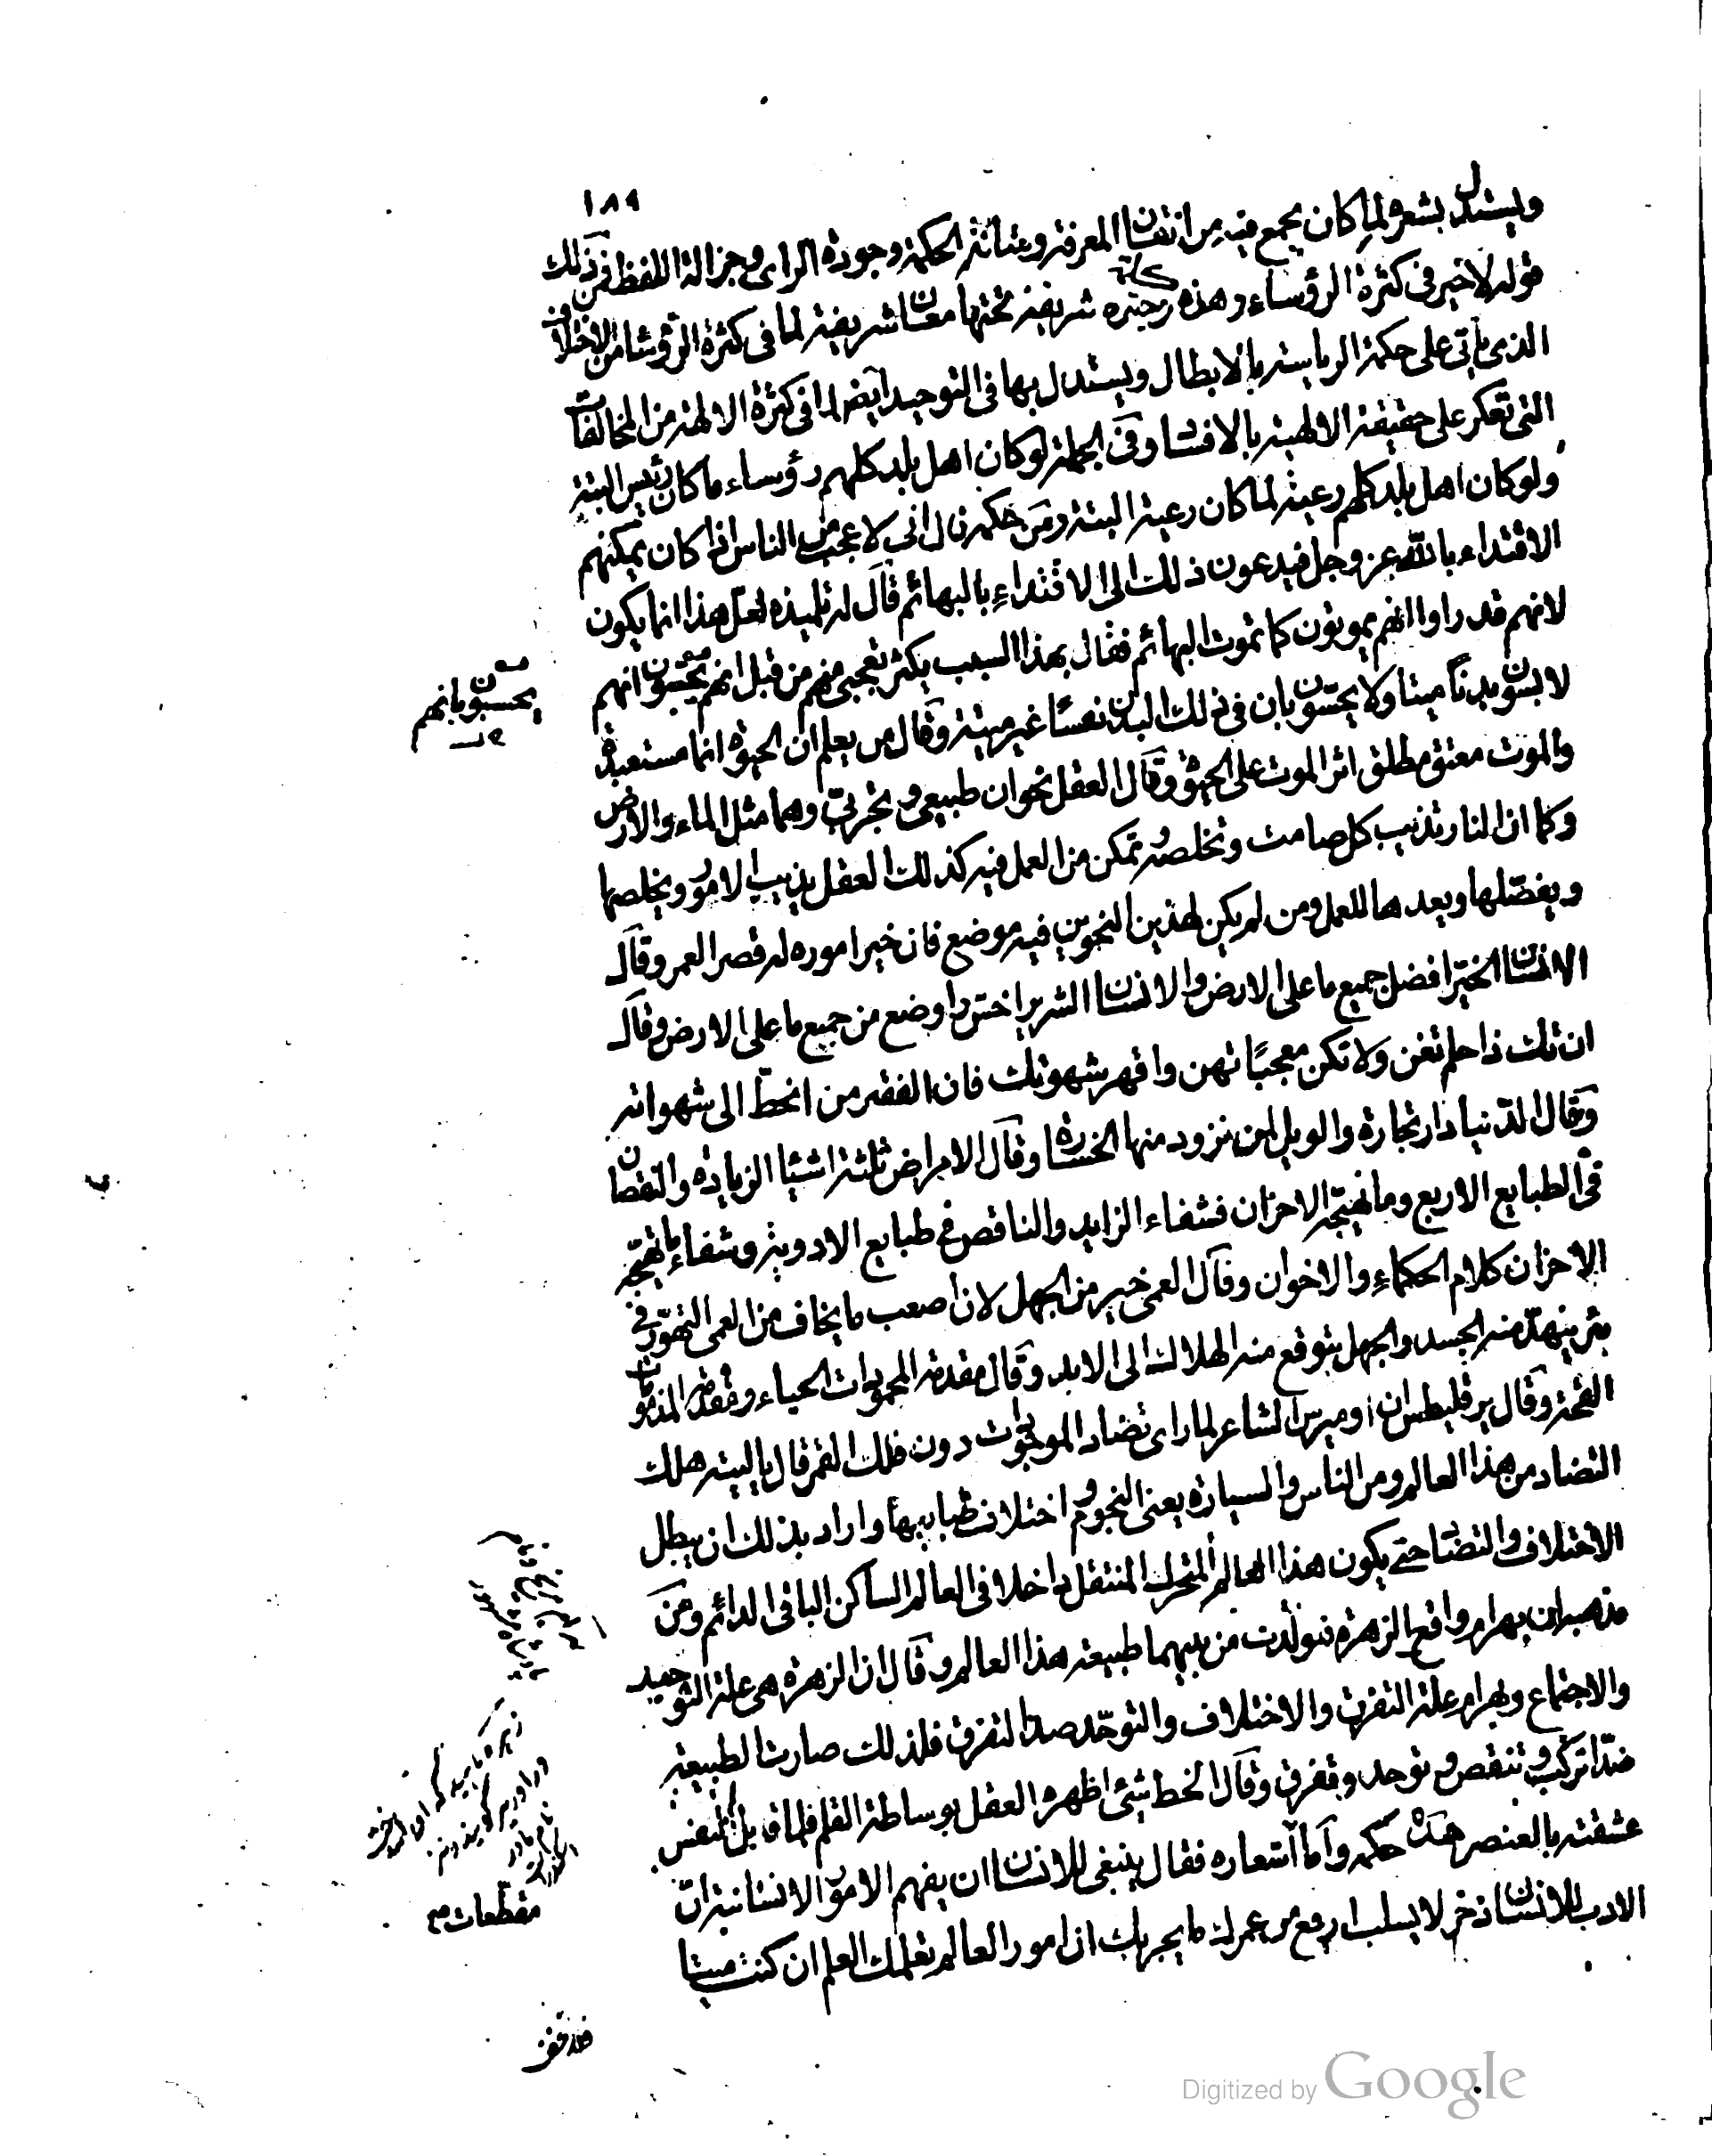 ١٨٩
ويستدل بشعره لما كان يجمع فيه من اتقان المعرفة ومتانة الحكمة وجودة الراى وجزالة اللفظ فمن ذلك
قوله لا خير فى كثرة الرؤساء وهذه كلمة وجيزه شريفة تحتها معان شريفة لما فى كثرة الرؤسا من الاختلاف
الذى ياتى على حكمة الرياسة بالابطال ويستدل بها فى التوحيد ايضا لما فى كثرة الالهة من المخالفات
التى تعكر على حقيقة الالهية بالافساد وفى الجملة لو كان اهل بلد كلهم رؤساء ما كان رئيس البتة
ولو كان اهل بلد كلهم رعية لما كان رعية البتة ومن حكمه قال انى لاعجب من الناس اذا كان يمكنهم
الاقتداء بالله عز وجل فيدعون ذلك الى الاقتداء بالبهائم قال له تلميذه لعل هذا انما يكون
لانهم قد راوا انهم يموتون كما تموت البهائم فقال بهذا السبب يكثر تعجبى منهم من قبل انهم يحسون انهم
لابسون بدناً ميتا ولا يحسّون بان فى ذلك البدن نفسًا غير ميتة وقال من يعلم ان الحيوة انما مستعبدة
والموت معتق مطلق اثر الموت على الحيوة وقال العقل نحوان طبيعى وتجربىّ وهما مثل الماء والارض
وكما ان النار تذيب كل صامت وتخلصه وتمكن من العمل فيه كذلك العقل يذيب الامور ويخلصها
ويفصّلها ويعدها للعمل ومن لم يكن لهذين النحوين فيه موضع فان خير اموره له قصر العمر وقال
الانسان الخيّر افضل جميع ما على الارض والانسان الشرير اخسّ واوضع من جميع ما على الارض وقال
ان تك ذا حلم تعن ولا تكن معجبًا تهن واقهر شهوتك فان الفقير من انحطّ الى شهواته
وقال الدنيا دار تجارة والويل لمن تزود منها الخسارة وقال الامراض ثلثة اشيا الزيادة والنقصان
فى الطبايع الاربع وما تهيّجه الاحزان فشفاء الزايد والناقص فى طبايع الادوية وشفاء ما تهيّجه
الاحزان كلام الحكماء والاخوان وقال العمى خير من الجهل لان اصعب ما يخاف من العمى التهوّر فى
بئر ينهدّ منه الجسد والجهل يتوقع منه الهلاك الى الابد وقال مقدمة المحمودات الحياء ومقدمة المذمومات
القحة وقال يرقليطس ان اوميرس الشاعر لما راى تضاد الموجودات دون فلك القمر قال يا ليته هلك
التضاد من هذا العالم ومن الناس والسيارة يعنى النجوم واختلاف طبايعها واراد بذلك ان يبطل
الاختلاف والتضاد حتى يكون هذا العالم المتحرك المنتقل داخلا فى العالم الساكن الباقى الدائم ومن
مذهبه ان بهرام واقع الزهرة فتولّدت من بينهما طبيعة هذا العالم وقال ان الزهرة هى علة التوحيد
والاجتماع وبهرام علة التفرق والاختلاف والتوحّد ضد التفرق فلذلك صارت الطبيعة
ضدّا تركّب وتنقص وتوحد وتفرق وقال الخط شئ اظهره العقل بوساطة القلم فلما قابل النفس
عشقته بالعنصر هذه حكمه واما اشعاره فقال ينبغى للانسان ان يفهم الامور الانسانية انّ
الادب للانسان ذخر لا يسلب ارفع من عمرك ما يحزنك ان امور العالم تعلمك العلم ان كنت ميتا
يحسبون بانهم
مقطعات